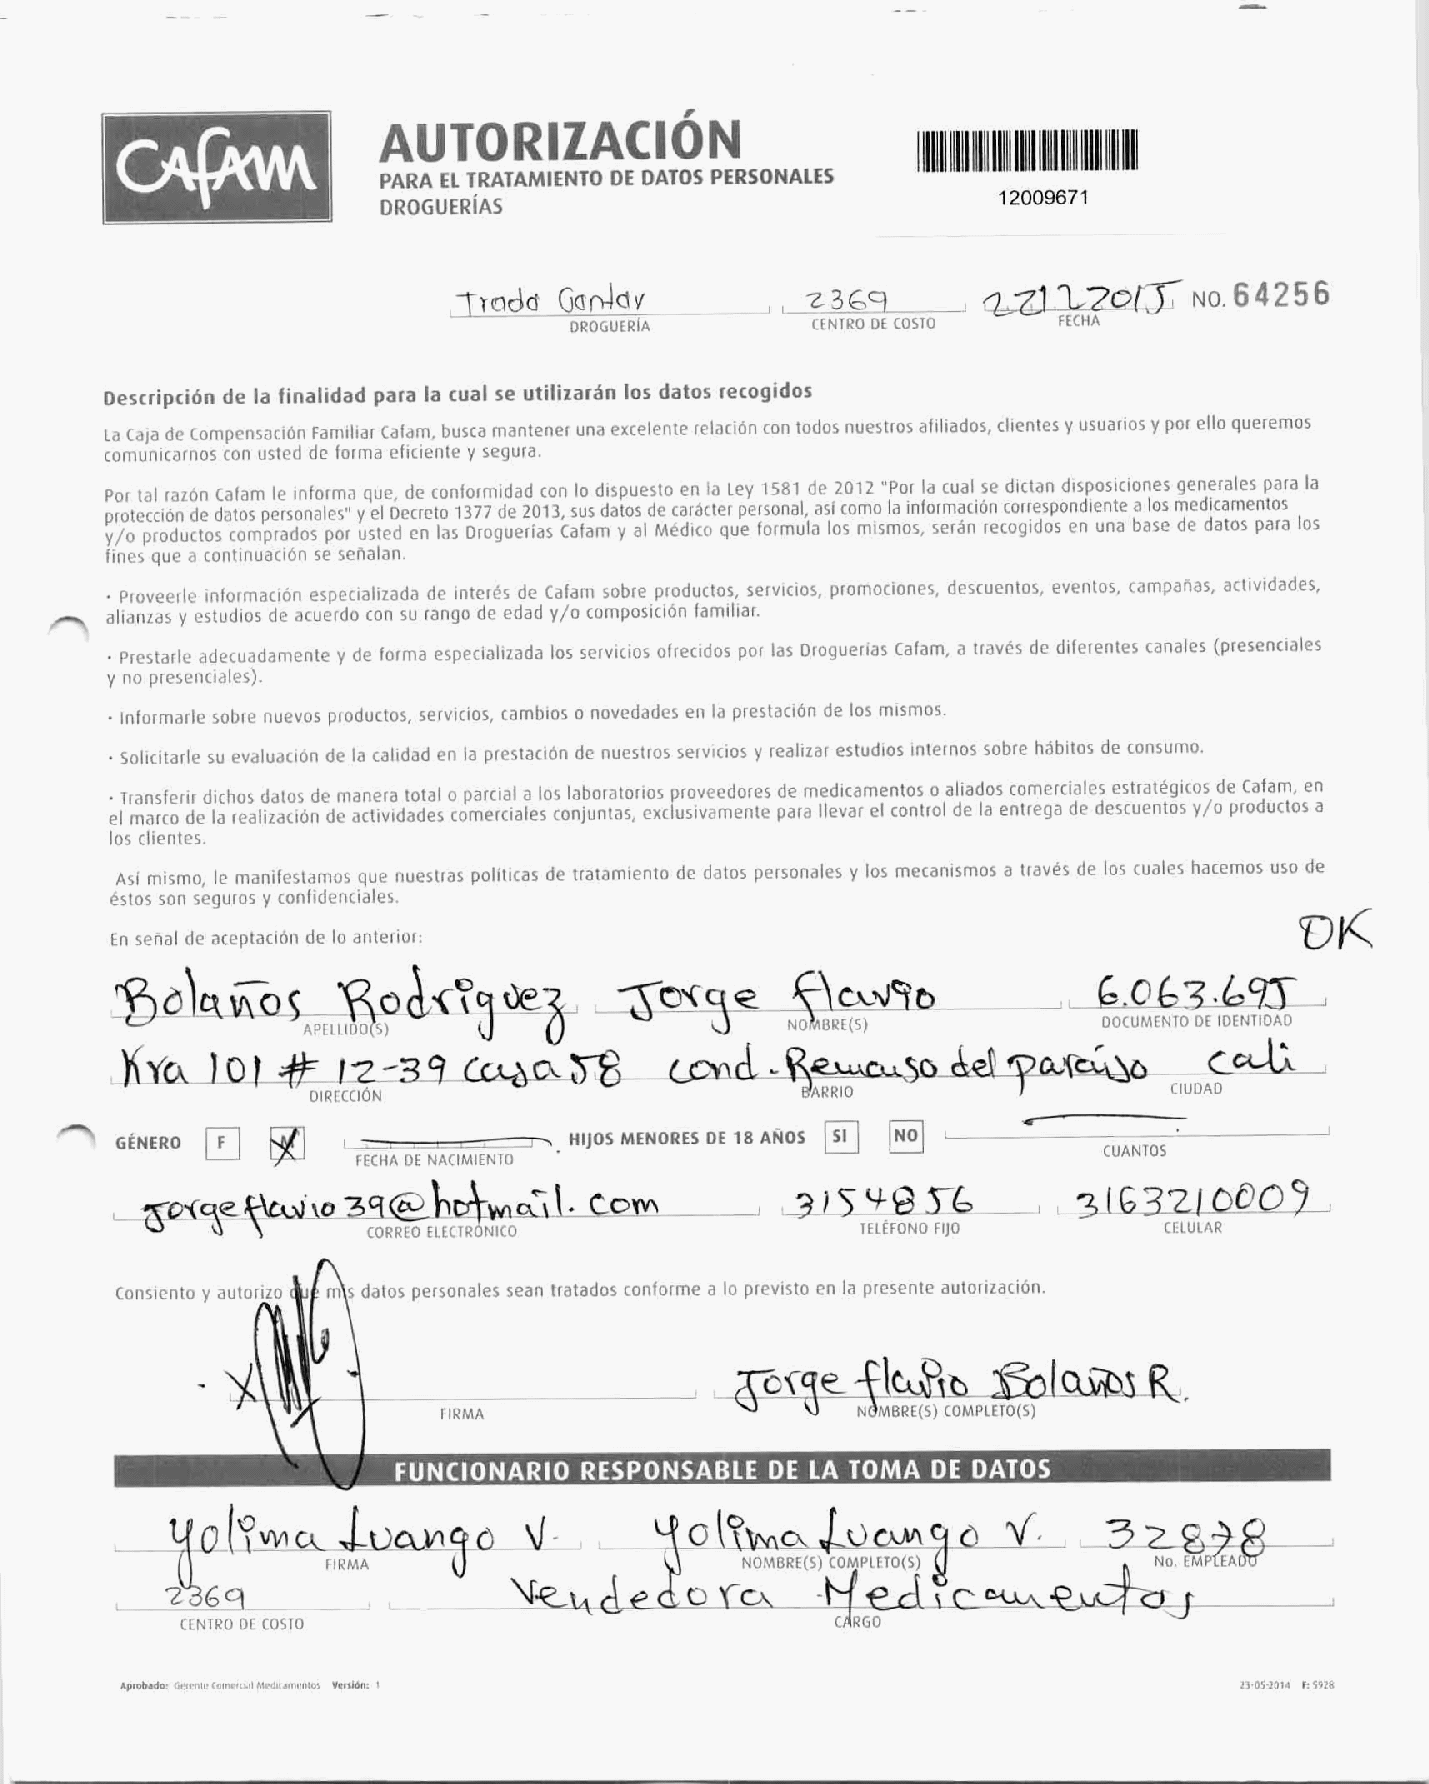 Cafam
AUTORIZACIÓN
PARA EL TRATAMIENTO DE DATOS PERSONALES
DROGUERÍAS
12009671
2369 NO. 64256
DROGUERÍA CENTRO DE COSTO FECHA
Descripción de la finalidad para la cual se utilizarán los datos recogidos
La Caja de Compensación Familiar Cafam, busca mantener una excelente relación con todos nuestros afiliados, clientes y usuarios y por ello queremos
comunicarnos con usted de forma eficiente y segura.
Por tal razón Cafam le informa que, de conformidad con lo dispuesto en la Ley 1581 de 2012 "Por la cual se dictan disposiciones generales para la
protección de datos personales" y el Decreto 1377 de 2013, sus datos de carácter personal, así como la información correspondiente a los medicamentos
y/o productos comprados por usted en las Droguerías Cafam y al Médico que formula los mismos, serán recogidos en una base de datos para los
fines que a continuación se señalan.
· Proveerle información especializada de interés de Cafam sobre productos, servicios, promociones, descuentos, eventos, campañas, actividades,
alianzas y estudios de acuerdo con su rango de edad y/o composición familiar.
· Prestarle adecuadamente y de forma especializada los servicios ofrecidos por las Droguerías Cafam, a través de diferentes canales (presenciales
y no presenciales).
· Informarle sobre nuevos productos, servicios, cambios o novedades en la prestación de los mismos.
· Solicitarle su evaluación de la calidad en la prestación de nuestros servicios y realizar estudios internos sobre hábitos de consumo.
· Transferir dichos datos de manera total o parcial a los laboratorios proveedores de medicamentos o aliados comerciales estratégicos de Cafam, en
el marco de la realización de actividades comerciales conjuntas, exclusivamente para llevar el control de la entrega de descuentos y/o productos a
los clientes.
Así mismo, le manifestamos que nuestras políticas de tratamiento de datos personales y los mecanismos a través de los cuales hacemos uso de
éstos son seguros y confidenciales.
En señal de aceptación de lo anterior:
OK
Bolaños Rodriguez Jorge flavio 6.063.695
APELLIDO(S) NOMBRE(S) DOCUMENTO DE IDENTIDAD
Kra 101 # 12-39 casa 58 cond. Remanso del paraiso cali
DIRECCIÓN BARRIO CIUDAD
GÉNERO F HIJOS MENORES DE 18 AÑOS SI NO
FECHA DE NACIMIENTO CUANTOS
Jorgeflavio39@hotmail.com 3154856 3163210009
CORREO ELECTRÓNICO TELÉFONO FIJO CELULAR
Consiento y autorizo que mis datos personales sean tratados conforme a lo previsto en la presente autorización.
X Jorge flavio Bolaños R.
FIRMA NOMBRE(S) COMPLETO(S)
FUNCIONARIO RESPONSABLE DE LA TOMA DE DATOS
Yolima Luango V. Yolima Luango V. 32878
FIRMA NOMBRE(S) COMPLETO(S) No. EMPLEADO
2369 Vendedora Medicamentos
CENTRO DE COSTO CARGO
Aprobado: Gerente Comercial Medicamentos Versión: 1 23-05-2014 F: 5928